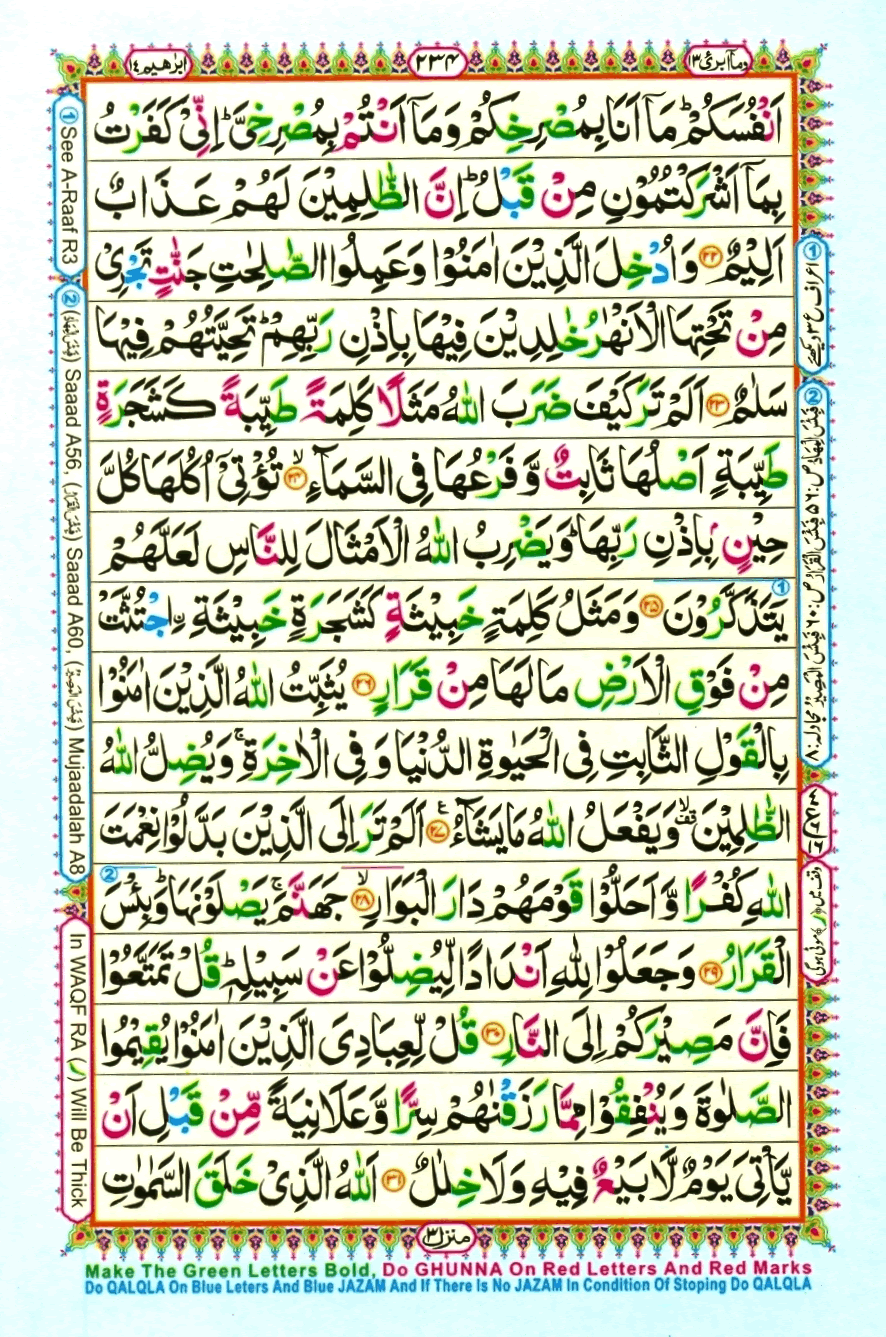 وما ابرئ ١٣
٢٣٤
ابرٰهيم ١٤
اَنْفُسَكُمْ ؕ مَاۤ اَنَا بِمُصْرِخِكُمْ وَمَاۤ اَنْتُمْ بِمُصْرِخِيَّ ؕ اِنِّيْ كَفَرْتُ
بِمَاۤ اَشْرَكْتُمُوْنِ مِنْ قَبْلُ ؕ اِنَّ الظّٰلِمِيْنَ لَهُمْ عَذَابٌ
اَلِيْمٌ ﴿۲۲﴾ وَاُدْخِلَ الَّذِيْنَ اٰمَنُوْا وَعَمِلُوا الصّٰلِحٰتِ جَنّٰتٍ تَجْرِيْ
مِنْ تَحْتِهَا الْاَنْهٰرُ خٰلِدِيْنَ فِيْهَا بِاِذْنِ رَبِّهِمْ ؕ تَحِيَّتُهُمْ فِيْهَا
سَلٰمٌ ﴿۲۳﴾ اَلَمْ تَرَ كَيْفَ ضَرَبَ اللّٰهُ مَثَلًا كَلِمَةً طَيِّبَةً كَشَجَرَةٍ
طَيِّبَةٍ اَصْلُهَا ثَابِتٌ وَّ فَرْعُهَا فِي السَّمَآءِ ۙ﴿۲۴﴾ تُؤْتِيْۤ اُكُلَهَا كُلَّ
حِيْنٍۭ بِاِذْنِ رَبِّهَا ؕ وَيَضْرِبُ اللّٰهُ الْاَمْثَالَ لِلنَّاسِ لَعَلَّهُمْ
يَتَذَكَّرُوْنَ ﴿۲۵﴾ وَمَثَلُ كَلِمَةٍ خَبِيْثَةٍ كَشَجَرَةٍ خَبِيْثَةِ ِۨاجْتُثَّتْ
مِنْ فَوْقِ الْاَرْضِ مَا لَهَا مِنْ قَرَارٍ ﴿۲۶﴾ يُثَبِّتُ اللّٰهُ الَّذِيْنَ اٰمَنُوْا
بِالْقَوْلِ الثَّابِتِ فِي الْحَيٰوةِ الدُّنْيَا وَ فِي الْاٰخِرَةِ ۚ وَيُضِلُّ اللّٰهُ
الظّٰلِمِيْنَ ۙ۫ وَيَفْعَلُ اللّٰهُ مَا يَشَآءُ ﴿۲۷﴾ اَلَمْ تَرَ اِلَى الَّذِيْنَ بَدَّلُوْا نِعْمَتَ
اللّٰهِ كُفْرًا وَّ اَحَلُّوْا قَوْمَهُمْ دَارَ الْبَوَارِ ۙ﴿۲۸﴾ جَهَنَّمَ ۚ يَصْلَوْنَهَا ؕ وَبِئْسَ
الْقَرَارُ ﴿۲۹﴾ وَجَعَلُوْا لِلّٰهِ اَنْدَادًا لِّيُضِلُّوْا عَنْ سَبِيْلِهٖ ؕ قُلْ تَمَتَّعُوْا
فَاِنَّ مَصِيْرَكُمْ اِلَى النَّارِ ﴿۳۰﴾ قُلْ لِّعِبَادِيَ الَّذِيْنَ اٰمَنُوْا يُقِيْمُوا
الصَّلٰوةَ وَيُنْفِقُوْا مِمَّا رَزَقْنٰهُمْ سِرًّا وَّعَلَانِيَةً مِّنْ قَبْلِ اَنْ
يَّاْتِيَ يَوْمٌ لَّا بَيْعٌ فِيْهِ وَلَا خِلٰلٌ ﴿۳۱﴾ اَللّٰهُ الَّذِيْ خَلَقَ السَّمٰوٰتِ
منزل ٣
① See A-Raaf R3
② (فَبِئْسَ الْمِهَادُ) Saaad A56, (فَبِئْسَ الْقَرَارُ) Saaad A60, (فَبِئْسَ الْمَصِيْرُ) Mujaadalah A8
In WAQF RA (ر) Will Be Thick
① اعراف ع ٣ دیکھئے
② فَبِئْسَ الْمِهَادُ ص: ٥٦ فَبِئْسَ الْقَرَارُ ص: ٦٠ فَبِئْسَ الْمَصِيْرُ مجادلہ: ٨
وقف میں (ر) موٹی ہوگی
Make The Green Letters Bold, Do GHUNNA On Red Letters And Red Marks
Do QALQLA On Blue Leters And Blue JAZAM And If There Is No JAZAM In Condition Of Stoping Do QALQLA